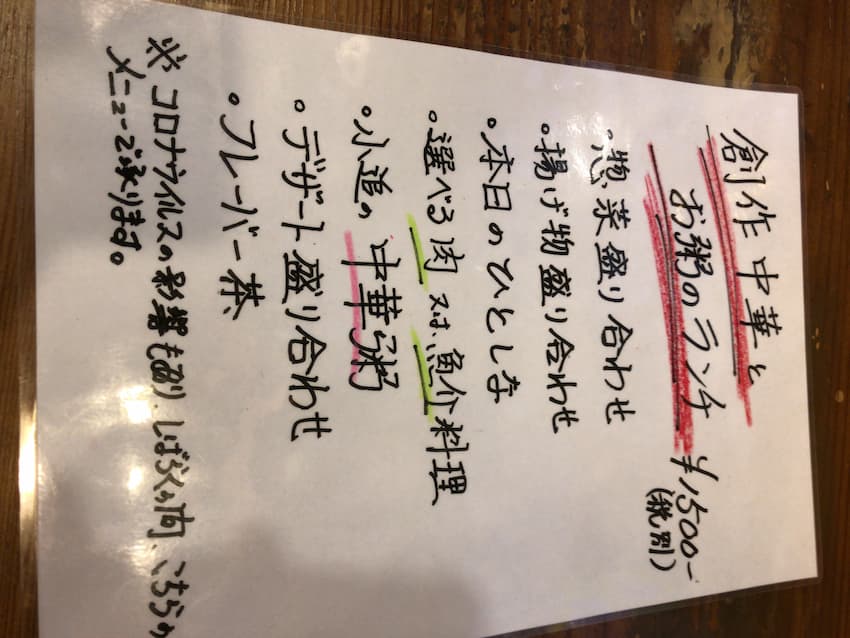 創作中華と
お粥のランチ ¥1500-
(税別)
。惣菜盛り合わせ
。揚げ物盛り合わせ
。本日のひとしな
。選べる肉又は、魚介料理
。の中華粥
。デザート盛り合わせ
。フレーバー茶
※コロナウイルスの影響もあり、しばらくの間、こちらの
メニューで承ります。